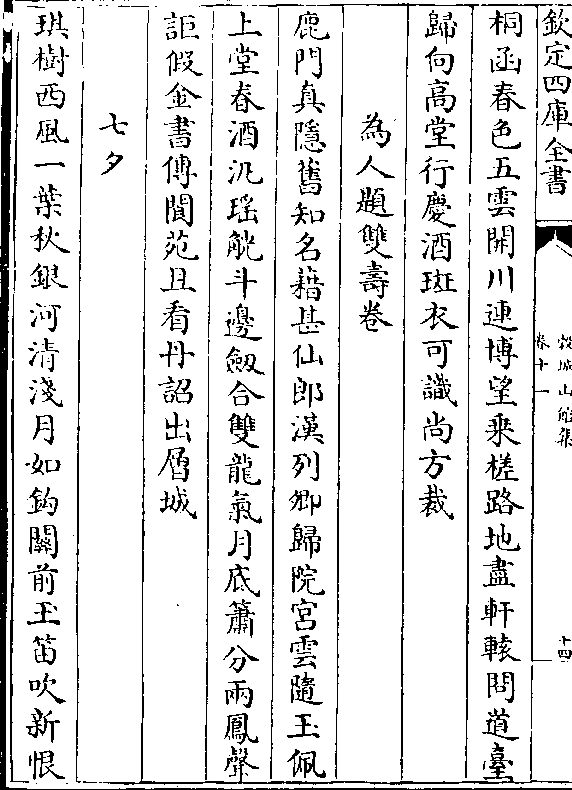 欽定四庫全書
榖城山館集
卷十一
十四
桐函春色五雲開川連博望乘槎路地盡軒轅問道臺
歸向高堂行慶酒斑衣可識尚方裁
為人題雙壽卷
鹿門真隱舊知名藉甚仙郎漢列卿歸院宮雲隨玉佩
上堂春酒汎瑤觥斗邊劔合雙龍氣月底簫分兩鳳聲
詎假金書傳閬苑且看丹詔出層城
七夕
琪樹西風一葉秋銀河清淺月如鈎闗前玉笛吹新恨